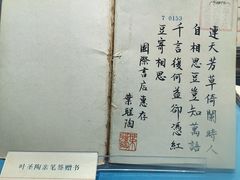 7 0153
連天芳草倚闌時人
自相思豆豈知萬語
千言復何益卻憑紅
豆寄相思
國際書店惠存
葉聖陶
叶圣陶亲笔签赠书